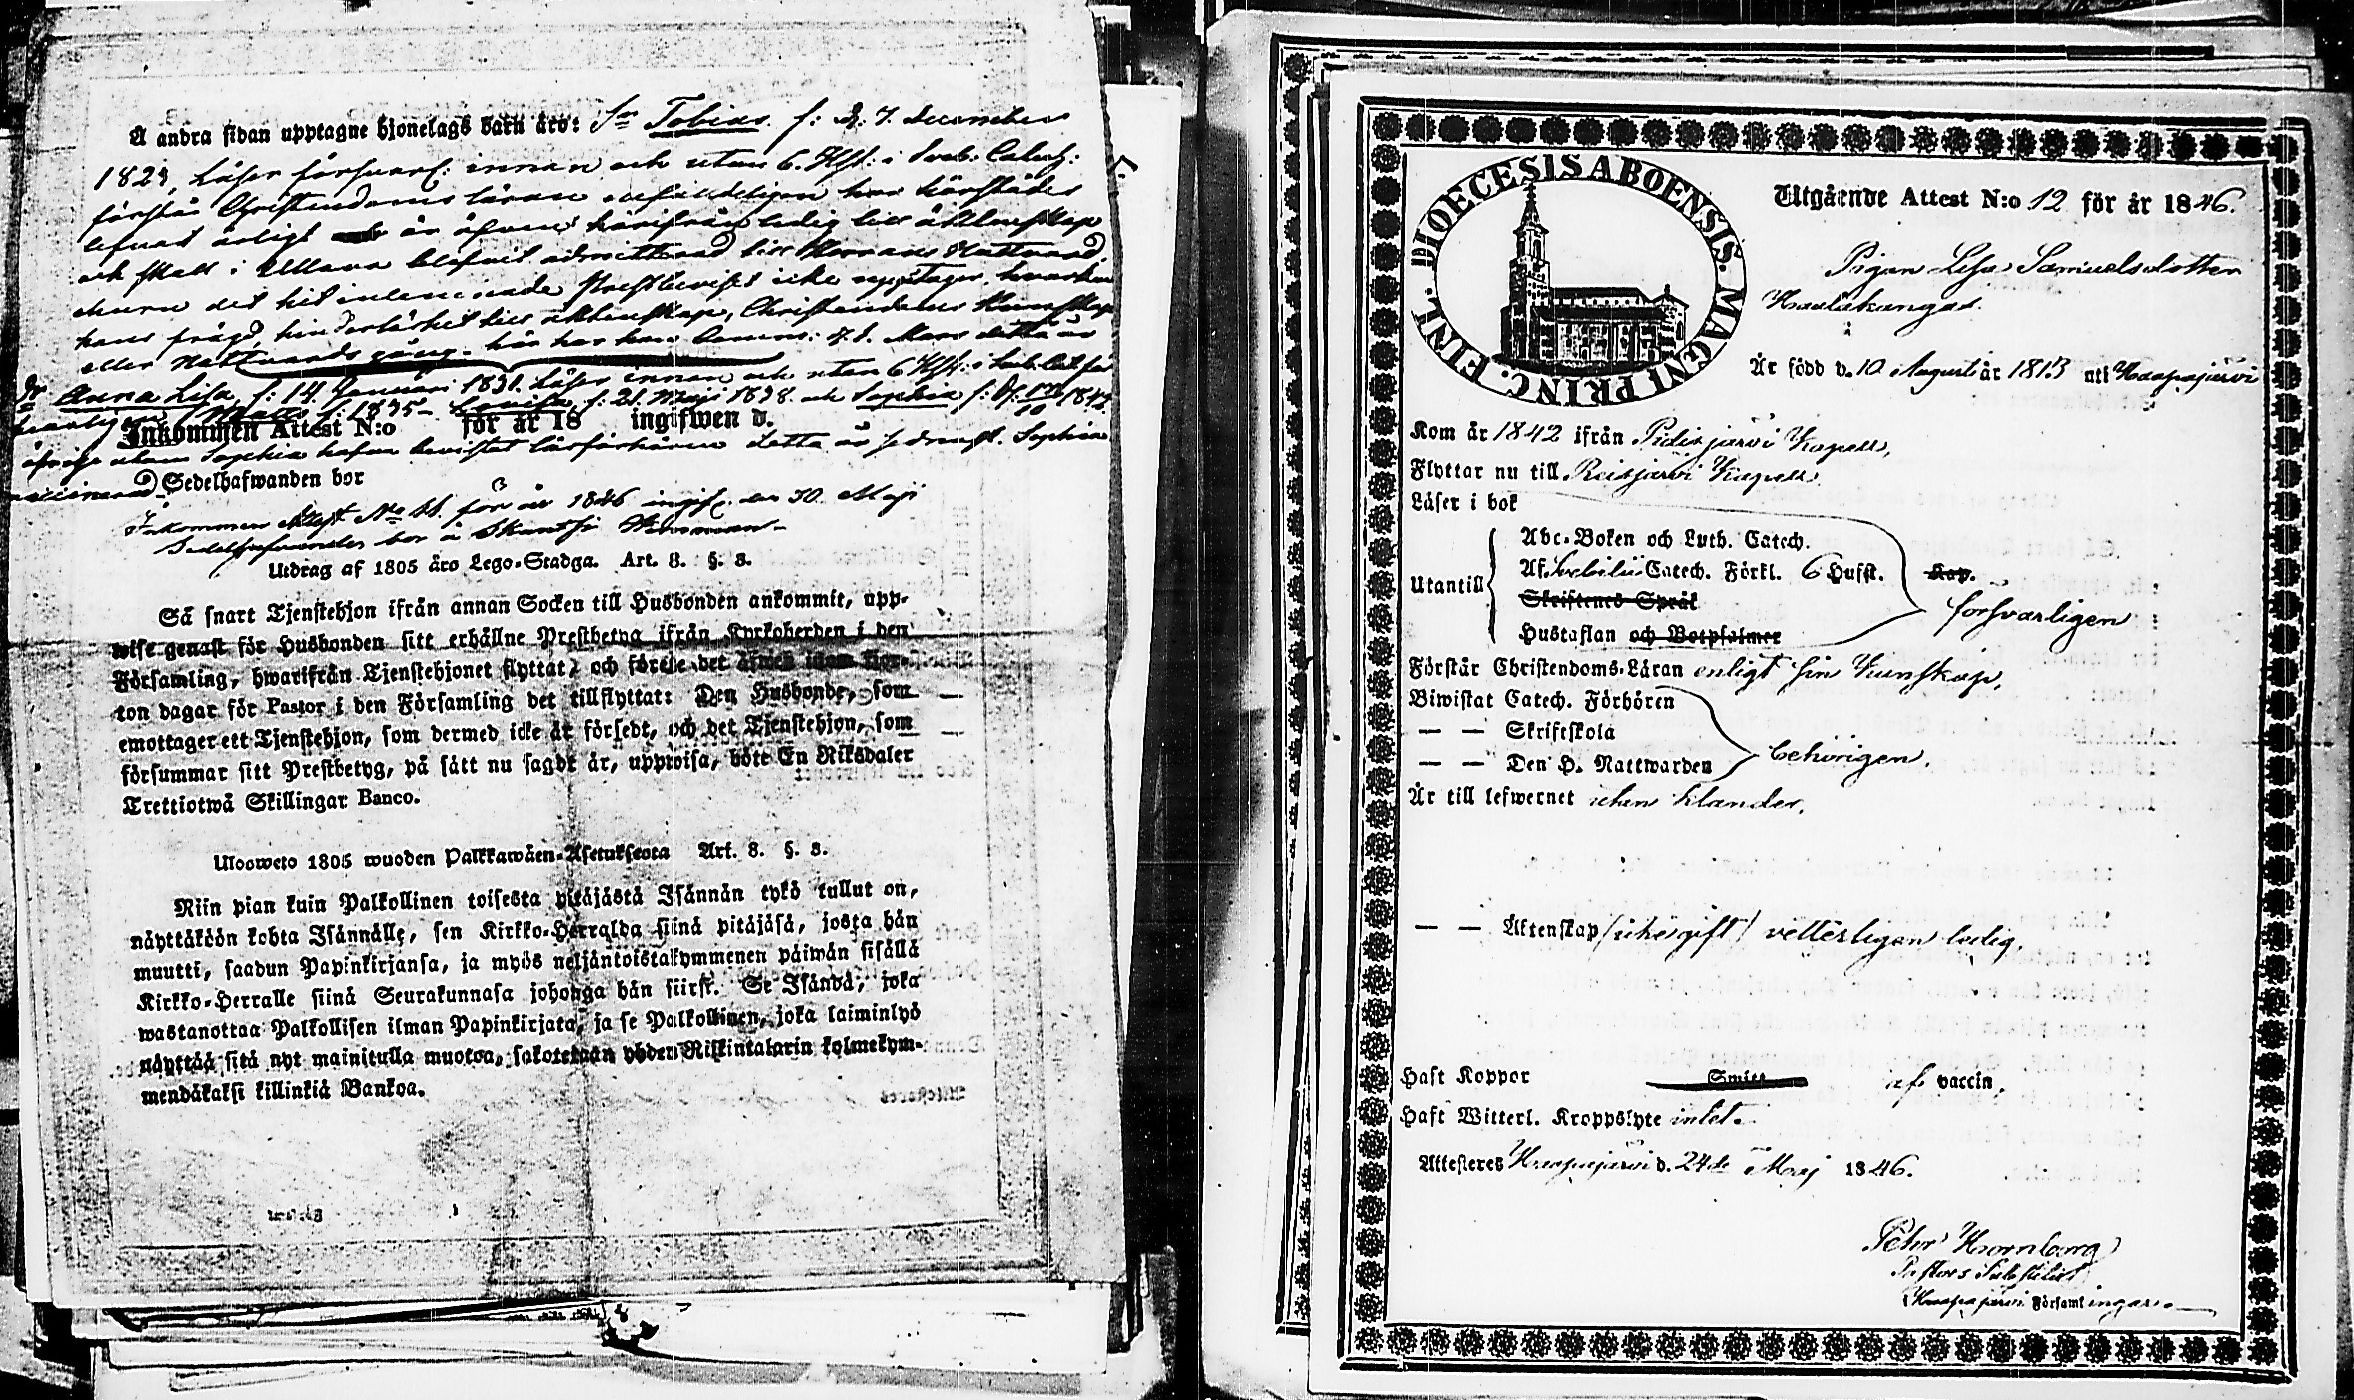 Å andra sidan upptagne hjonelags barn äro: Sn Tobias f: d. 7. December
1823, Läser försvarl: innan och utan 6. Hfst: i Sveb: Catech:
förstår Christendoms läran enfaldeligen har härstädes
lefvat ärligt är äfven härifrån ledig till äktenskap
och skall i blifvit admitterad till Herrans Nattvard
churu det hit inlemnade Prestbeviset icke upptager hvarken
hans frägd, hinderlöshet till äktenskap, Christendoms Kunskap
eller Nattvards gång. här har han Comm: d. 1. Mars detta år
Anna Lisa, f: 14. Januari 1831. Läser innan och utan 6 Hfst: i
f: 1835 Lovisa f: 21. Maji 1838. och Sophia f: 1842
Inkommen Attest N:o för år 18 ingifwen d.
utan Sophia hafva bevistat läsförhören detta år Sophia
Sedelhafwanden bor
Inkommen Attest No 11. för år 1846 ingif. den 30. Maji
Sedelhafvanden bor å
Utdrag af 1805 års Lego-Stadga. Art. 8. §. 3.
Så snart Tjenstehjon ifrån annan Socken till Husbonden ankommit, upp-
wise genast för Husbonden sitt erhållne Prestbetyg ifrån Kyrkoherden i den
Församling, hwarifrån Tjenstehjonet flyttat, och förete det äfwen inom fjor-
ton dagar för Pastor i den Församling det tillflyttat: Den Husbonde, som
emottager ett Tjenstehjon, som dermed icke är försedt, och det Tjenstehjon, som
försummar sitt Prestbetyg, på sätt nu sagdt är, uppwisa, böte En Riksdaler
Trettiotwå Skillingar Banco.
Uloswето 1805 wuoden Palkkawäen-Asetuksesta Art. 8. §. 3.
Niin pian kuin Palkollinen toisesta pitäjästä Isännän tykö tullut on,
näyttäköön kohta Isännälle, sen Kirkko-Herralda siinä pitäjäsä, josta hän
muutti, saadun Papinkirjansa, ja myös neljäntoistakymmenen päiwän sisällä
Kirkko-Herralle siinä Seurakunnasa johonga hän siirsi. Se Isändä, joka
wastanottaa Palkollisen ilman Papinkirjata, ja se Palkollinen, joka laiminlyö
näyttää sitä nyt mainitulla muotoa, sakotetaan yhden Riikintalarin kolmekym-
mendäkaksi killinkiä Bankoa.
DIOECESIS ABOENSIS. MAGNI PRINC. FINL.
Utgående Attest N:o 12 för år 1846.
Pigan Lisa Samuelsdotter
Haalakangas.
Är född d. 10 Augusti år 1813 uti Haapajärvi
Kom år 1842 ifrån Pidisjärvi Kapell,
Flyttar nu till Reisjärvi Kapell.
Läser i bok
Utantill
Abc-Boken och Luth. Catech.
Af Svebilii Catech. Förkl. 6 Hufst. Kap.
Skriftenes Språk
Hustaflan och Botpsalmer
försvarligen
Förstår Christendoms-Läran enligt sin Kunskap.
Biwistat Catech. Förhören
— — Skriftskola
— — Den H. Nattwarden
behörigen.
Är till lefwernet utan klander.
— — Äktenskap (icke gift) vetterligen ledig.
Haft Koppor Smitt. af vaccin,
Haft Witterl. Kroppslyte intet.
Attesteres Haapajärvi d. 24de Maj 1846.
Pehr Hornborg
Pastors Substitut
Haapajärvi Församlingar